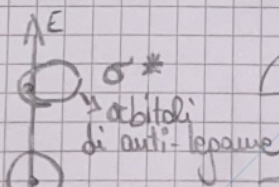 E
σ*
orbitali
di anti-legame